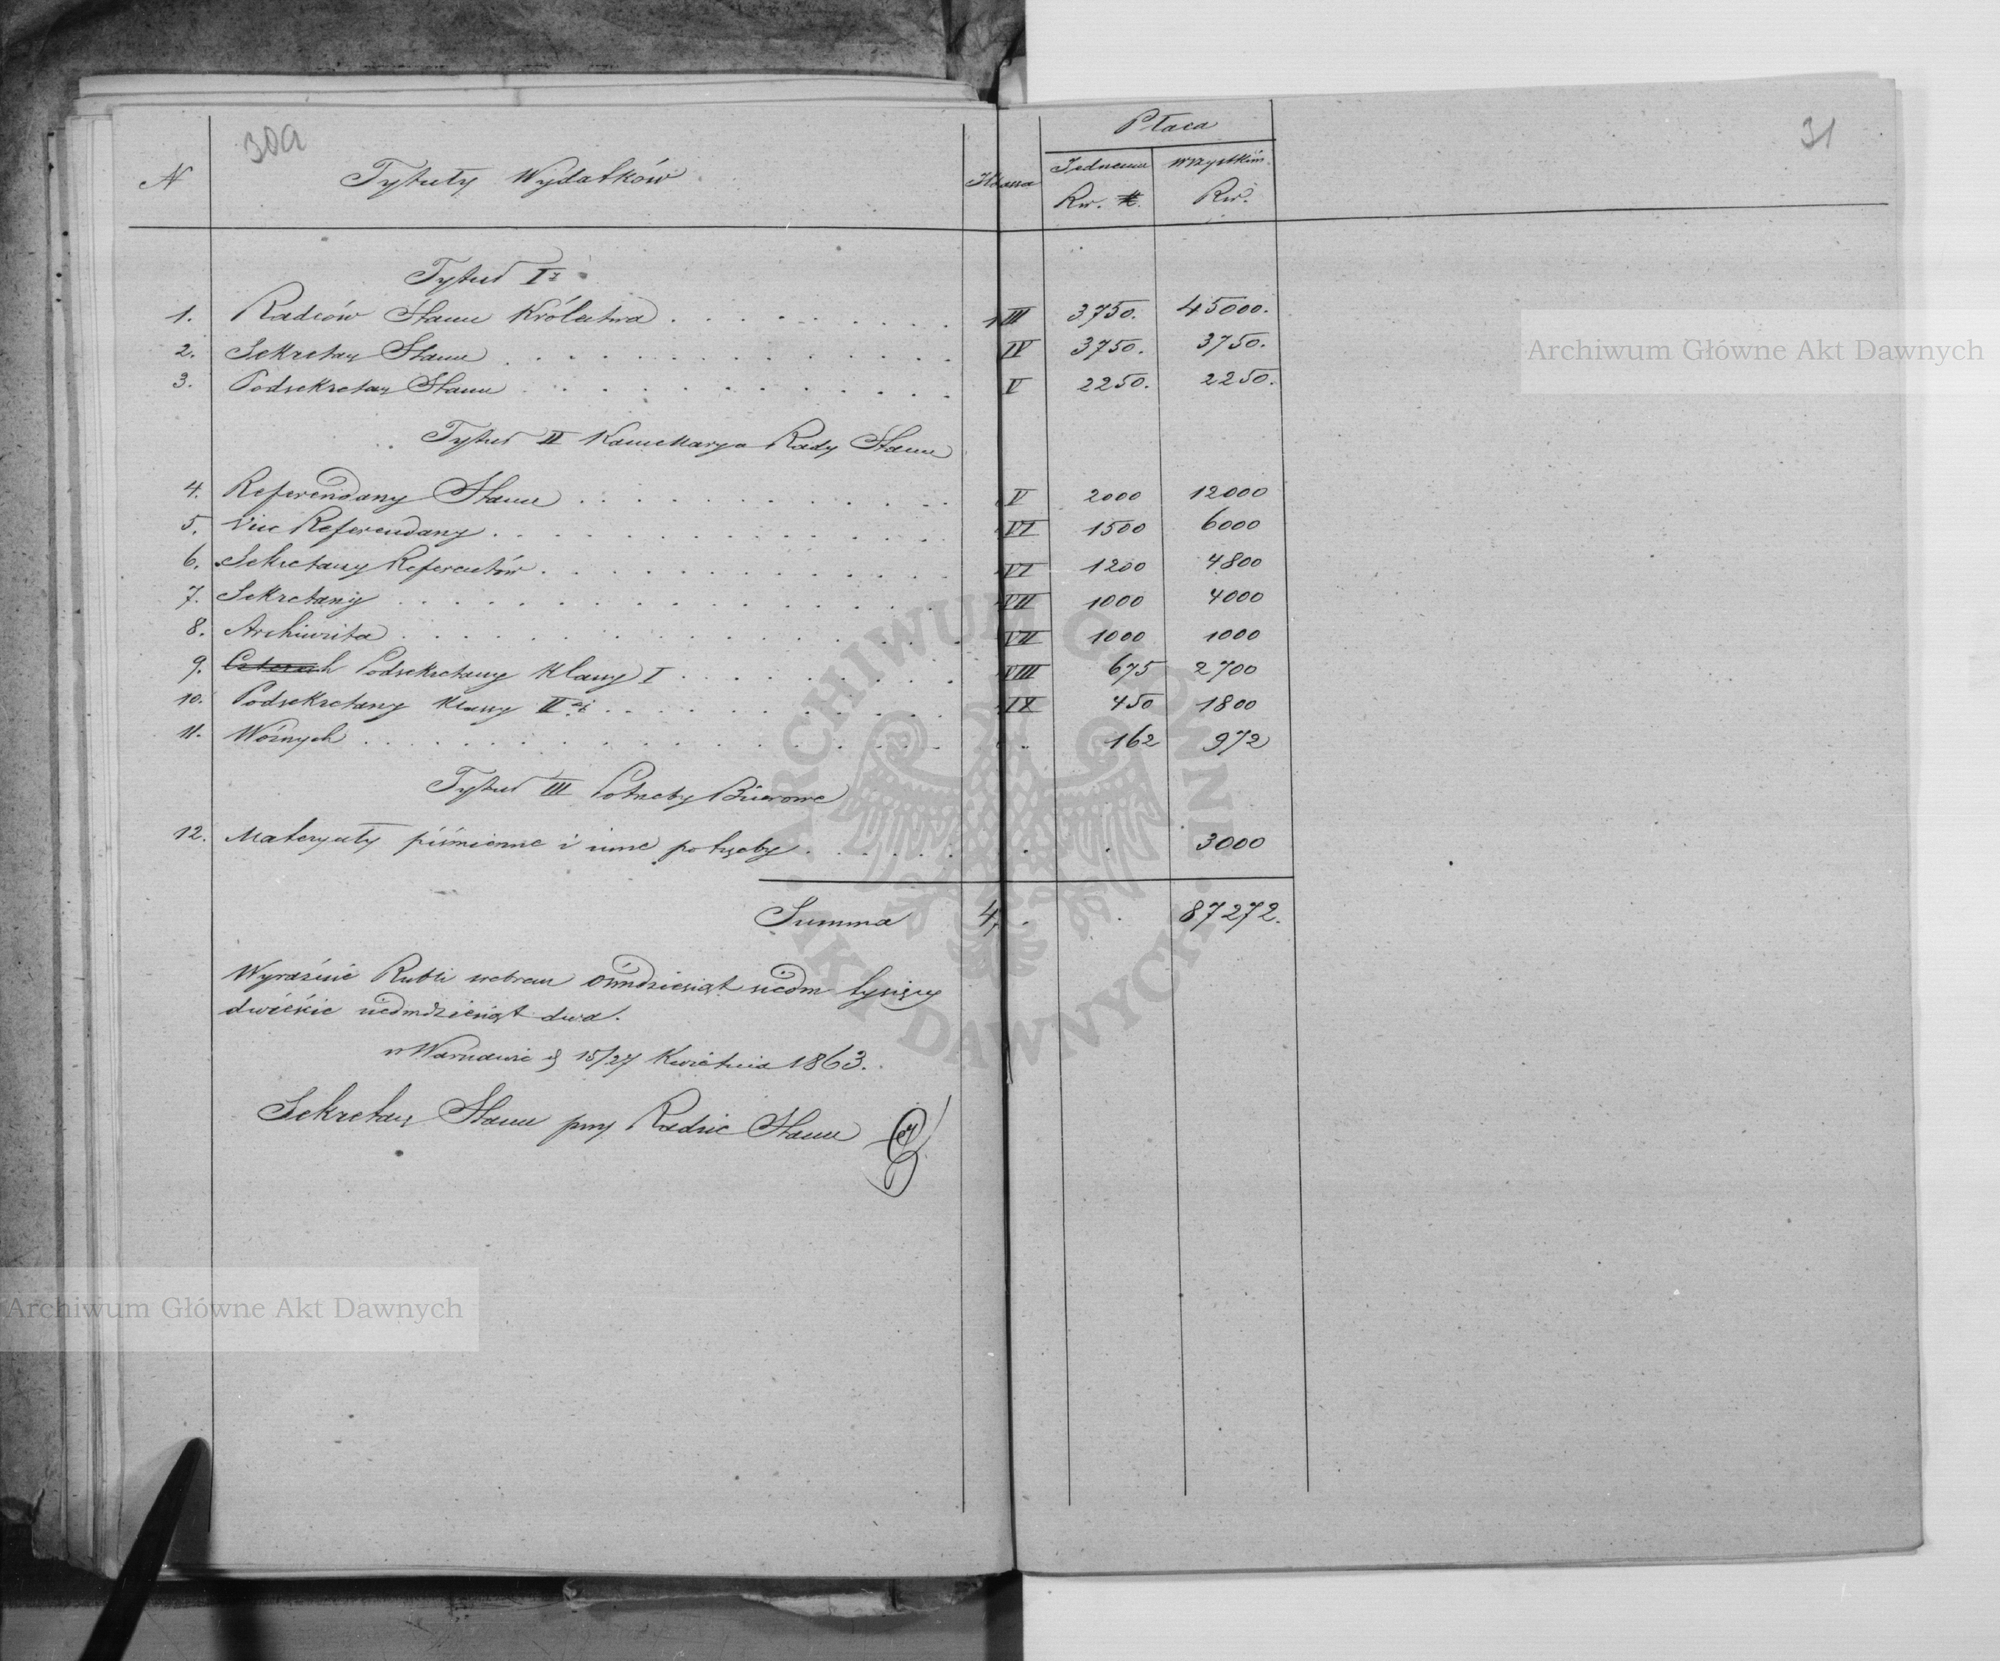 30a
31
Płaca
N Tytuły Wydatków Klassa Jednemu Wszystkim
Rsr. Rsr.
Tytuł I
1. Radców Stanu Królestwa . . . . . . . . III 3750. 45000.
2. Sekretarz Stanu . . . . . . . . IV 3750. 3750.
3. Podsekretarz Stanu . . . . . . . . V 2250. 2250.
Tytuł II Kancellarya Rady Stanu
4. Referendarzy Stanu . . . . . . . . V 2000 12000
5. Vice Referendarzy . . . . . . . . VI 1500 6000
6. Sekretarzy Referentów . . . . . . . . VI 1200 4800
7. Sekretarzy . . . . . . . . VII 1000 4000
8. Archiwista . . . . . . . . VII 1000 1000
9. Czterech Podsekretarzy Klassy I . . . . . . . . VIII 675 2700
10. Podsekretarzy Klassy II . . . . . . . . IX 450 1800
11. Woźnych . . . . . . . . 162 972
Tytuł III Potrzeby Biurowe
12. Materyały piśmienne i inne potrzeby . . . . . . 3000
Summa 87272.
Wyraźnie Rubli srebrem ośmdziesiąt siedm tysięcy
dwieście siedmdziesiąt dwa.
w Warszawie d 15/27 Kwietnia 1863.
Sekretarz Stanu przy Radzie Stanu
Archiwum Główne Akt Dawnych
Archiwum Główne Akt Dawnych
ARCHIWUM GŁÓWNE AKT DAWNYCH